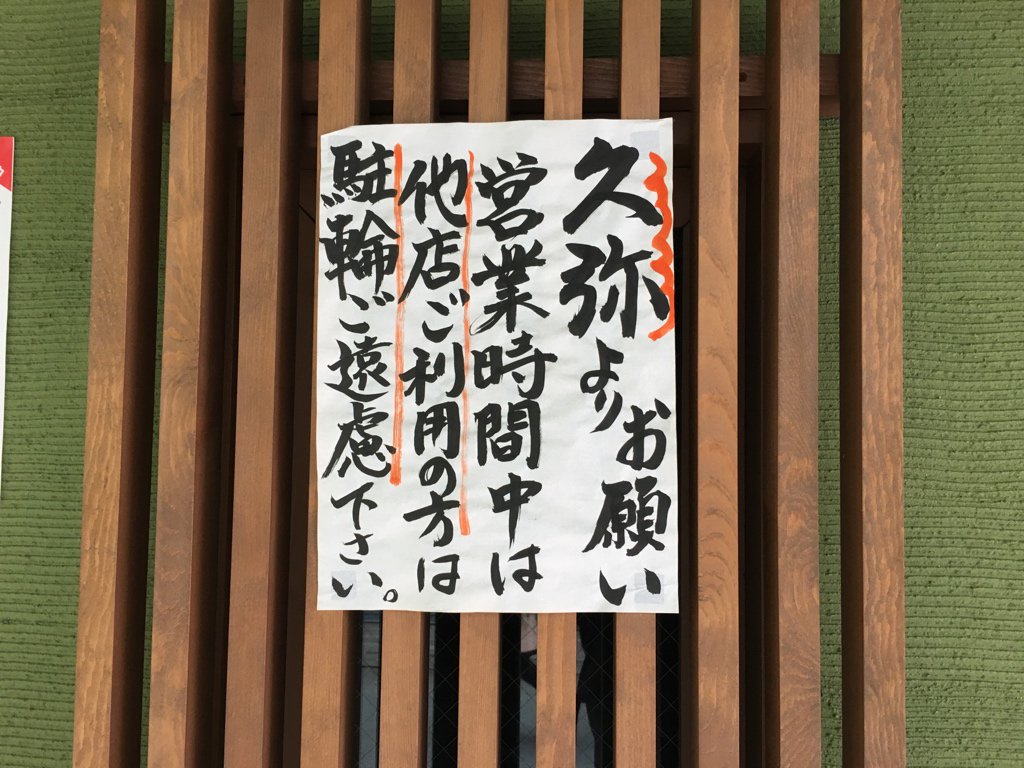 久弥よりお願い
営業時間中は
他店ご利用の方は
駐輪ご遠慮下さい。